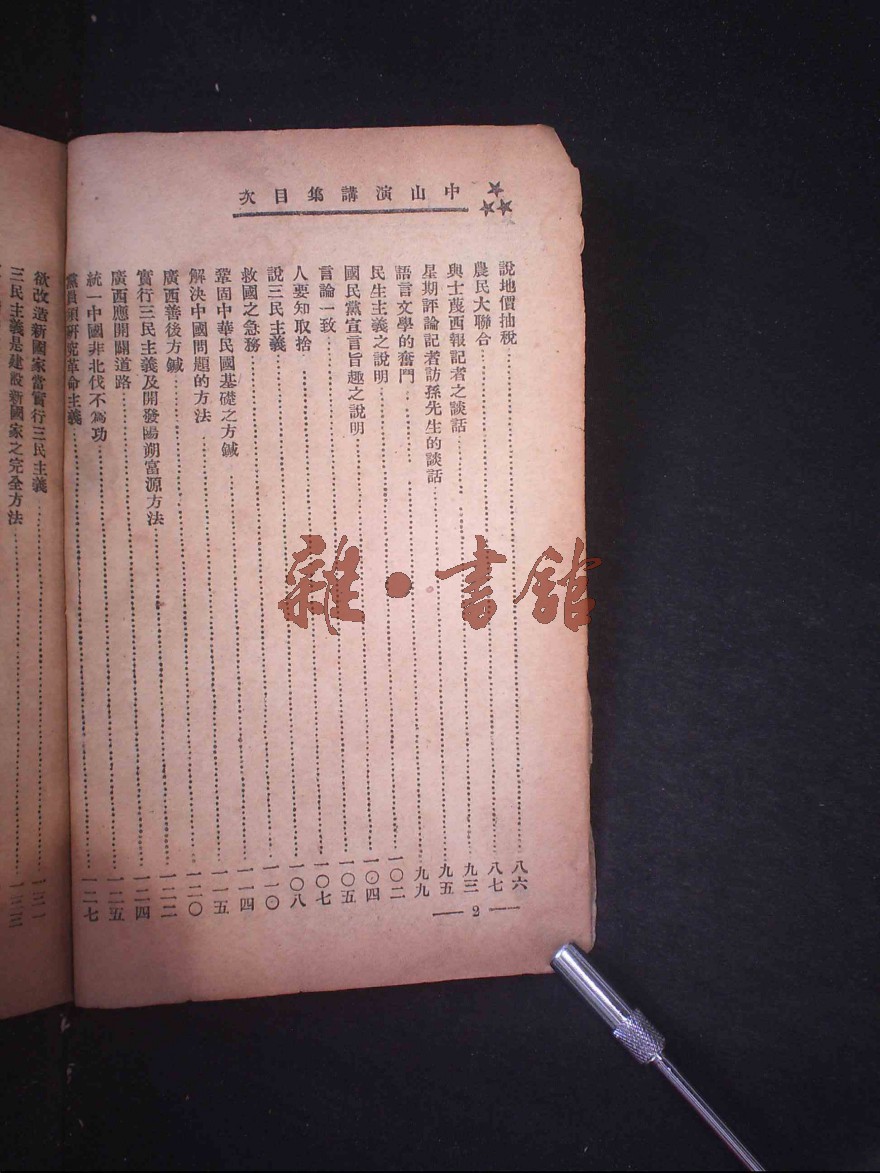 中山演講集目次
說地價抽稅……八六
農民大聯合……八七
與士蔑西報記者之談話……九三
星期評論記者訪孫先生的談話……九五
語言文學的奮鬥……九九
民生主義之說明……一〇二
國民黨宣言旨趣之說明……一〇四
言論一致……一〇五
人要知取捨……一〇七
說三民主義……一〇八
救國之急務……一一〇
鞏固中華民國基礎之方鍼……一一四
解決中國問題的方法……一一五
廣西善後方鍼……一二〇
實行三民主義及開發陽朔富源方法……一二二
廣西應開闢道路……一二四
統一中國非北伐不為功……一二五
黨員須研究革命主義……一二七
— 2 —
欲改造新國家當實行三民主義……一三一
三民主義是建設新國家之完全方法……一三三
雜·書館